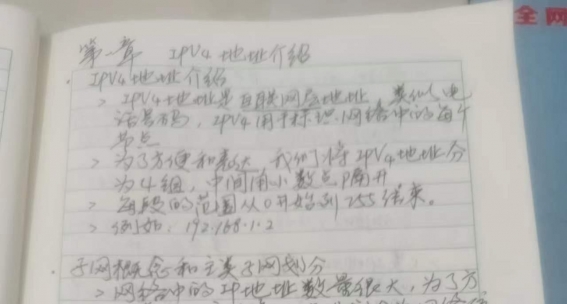 全网
第一章 IPV4地址介绍
IPV4地址介绍
> IPV4地址是互联网层地址 类似电
话号码，IPV4用于标识网络中的每个
节点
> 为了方便和表达 我们将IPV4地址分
为4组，中间用小数点隔开
> 每段的范围从0开始到255结束。
> 例如，192.168.1.2
子网概念和主类子网划分
> 网络中的IP地址数量很大，为了方